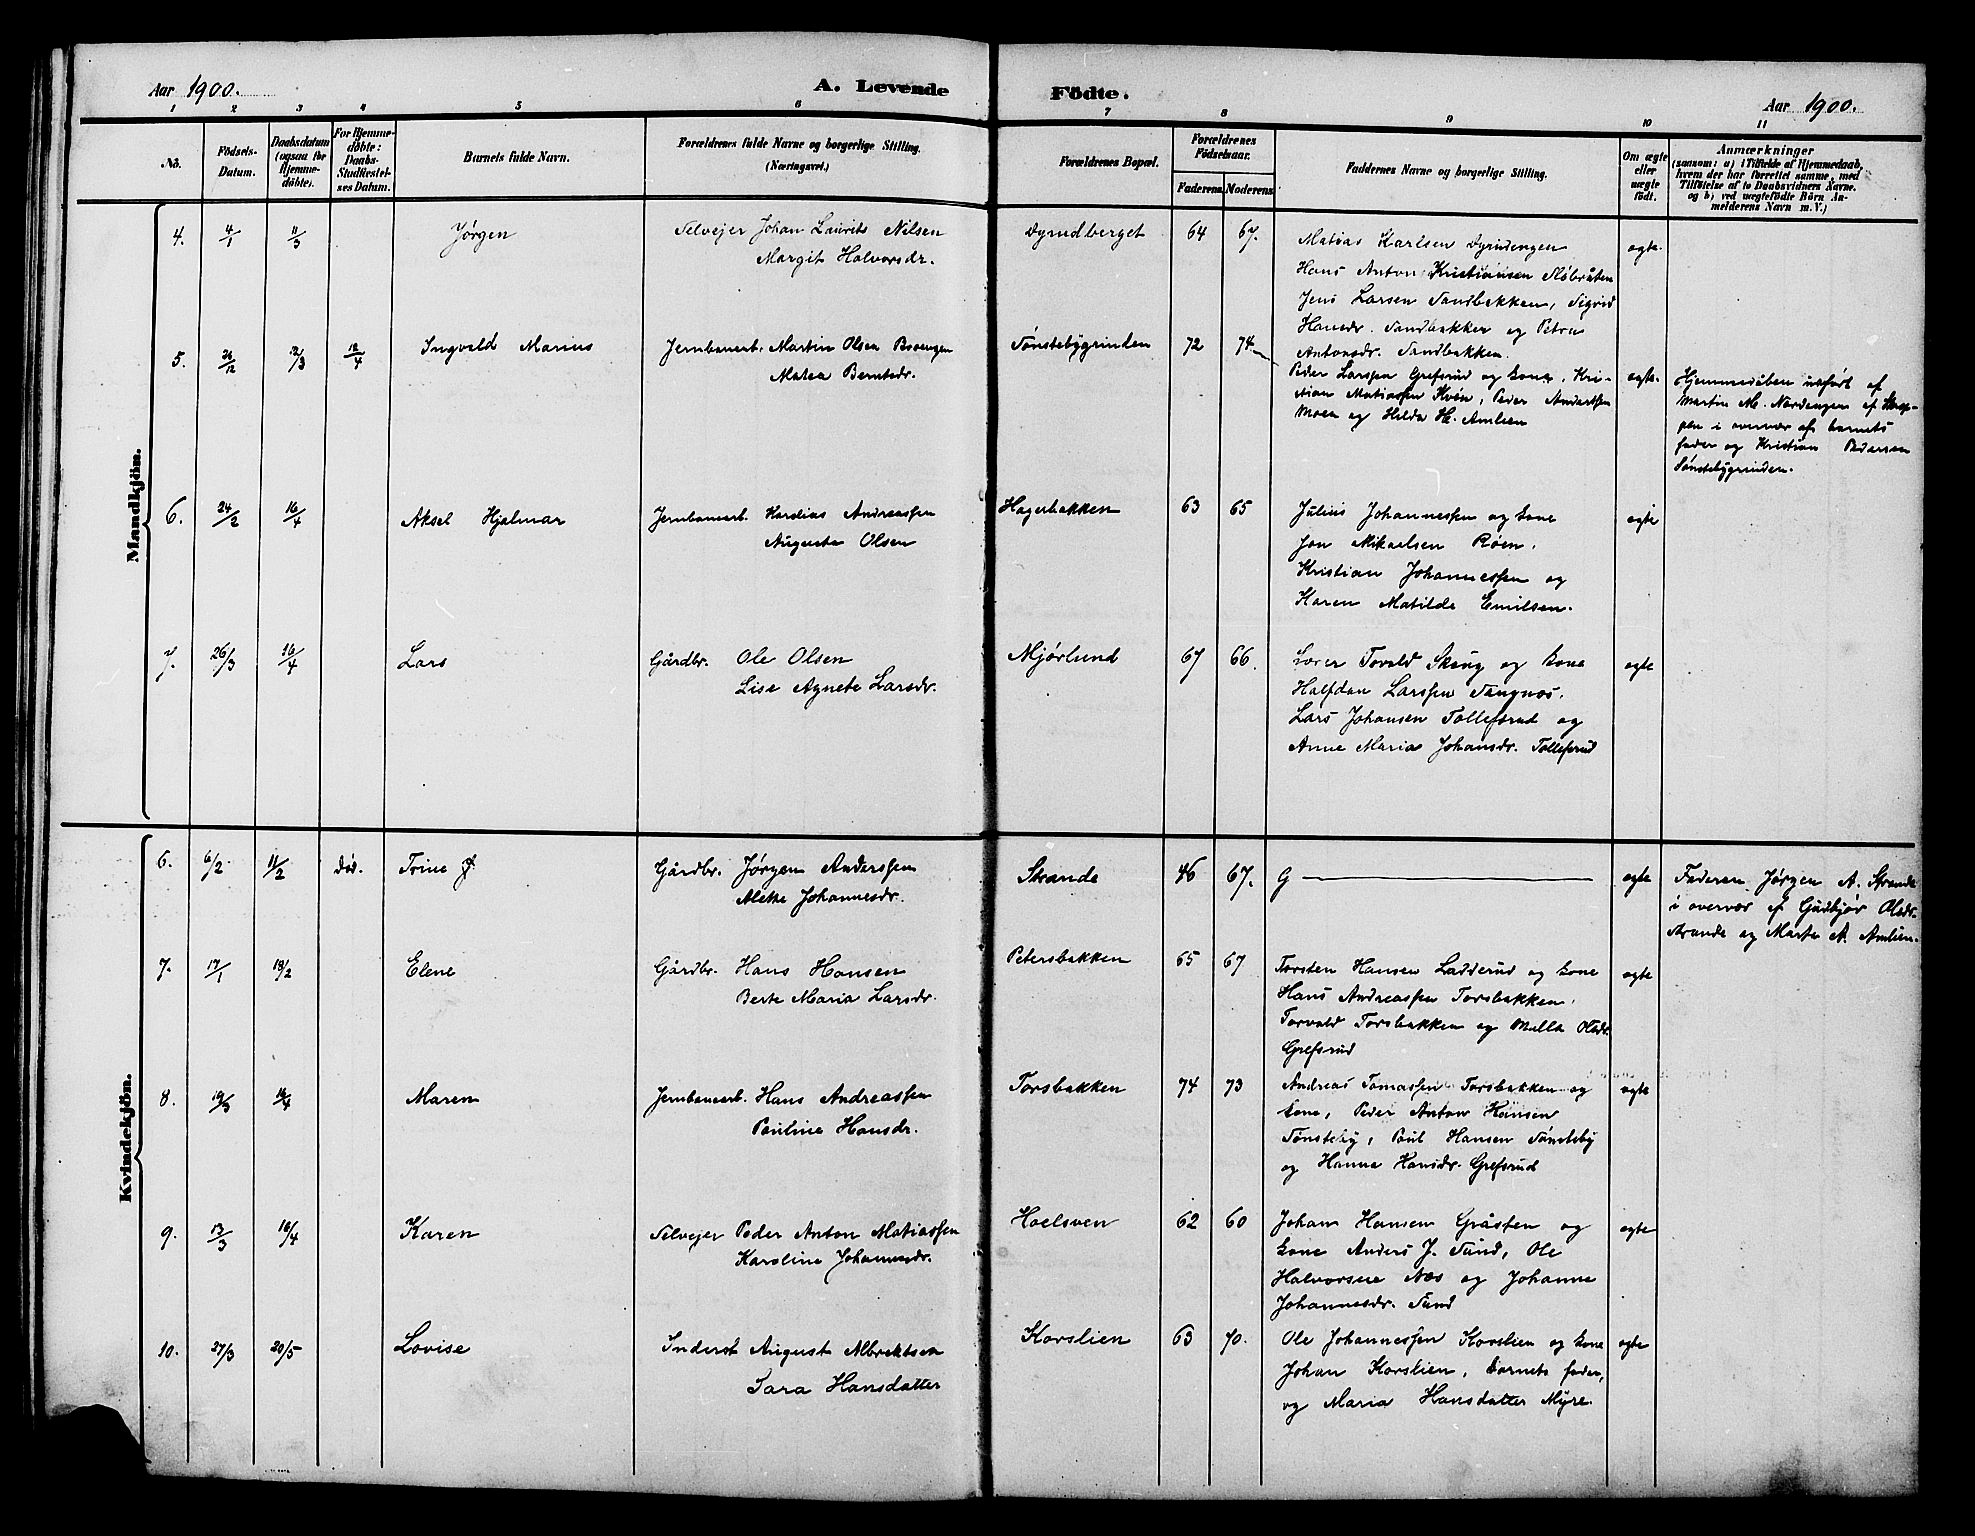 Aar 1900. A. Levende Födte. Aar 1900.
1 2 3 4 5 6 7 8 9 10 11
No. Födsels-Datum. Daabsdatum (ogsaa for Hjemmedöbte). For Hjemmedöbte: Daabs-Stadfæstelses Datum. Barnets fulde Navn. Forældrenes fulde Navne og borgerlige Stilling. (Næringsvei.) Forældrenes Bopæl. Forældrenes Födselsaar. Faderens. Moderens. Faddernes Navne og borgerlige Stilling. Om ægte eller uægte födt. Anmærkninger
(saasom: a) i Tilfælde af Hjemmedaab,
hvem der har forrettet samme, med
Tilföielse af to Daabsvidners Navne.
og b) ved uægtefödte Börn An-
melderens Navn m. V.)
Mandkjön.
4. 4/1 11/3 Jørgen Selvejer Johan Laurits Nilsen Dyrudberget 64 67. Matias Karlsen Dyrudengen ægte.
Margit Halvorsdr. Hans Anton Kristiansen Slåbråten
Jens Larsen Sandbakken, Sigrid
Hansdr. Sandbakken og Petra
Antonsdr. Sandbakken.
5. 26/12 12/3 12/4 Ingvald Marius Jernbanearb. Martin Olsen Tønstebygrinden 72 74. Peder Larssen Grefsrud og kone, Kri- ægte. Hjemmedåben udført af
Matea Berntsdr. stian Matiassen Kvén, Peder Anderssen Martin M. Nordengen af
Moen og Hilda H. Amlien i overvær af barnets
fader og Kristian Pedersen
Tønstebygrinden.
6. 24/2 16/4 Aksel Hjalmar Jernbanearb. Andreassen Hagerbakken 63 65 Julius Johannessen og kone ægte
Augusta Olsen Jon Mikaelsen Røen.
Kristian Johannessen og
Karen Matilde Emilsen.
7. 26/3 16/4 Lars Gårdbr. Ole Olsen Mjørlund 67 66. Lærer Torvald Skaug og kone ægte
Lise Agnete Larsdr. Halfdan Larssen Sangnæs.
Lars Johansen Tollefsrud og
Anne Maria Johansdr. Tollefsrud
Kvindekjön.
6. 6/2 11/2 død. Trine Gårdbr. Jørgen Anderssen Strande 46 67. G ægte Faderen Jørgen A. Strande
Alette Johannesdr. i overvær af Gudbjør Olsdr.
Strande og Marte A. Amlien.
7. 17/1 18/2 Elene Gårdbr. Hans Hansen Petersbakken 65 67 Torsten Hansen Ladderud og kone ægte
Berte Maria Larsdr. Hans Andreassen Torsbakken,
Torvald Torsbakken og Mulla Olsdr.
Grefsrud
8. 19/3 16/4 Maren Jernbanearb. Hans Andreassen Torsbakken 74 73 Andreas Tomassen Torsbakken og ægte
Pauline Hansdr. kone, Peder Anton Hansen
Tønsteby, Paul Hansen Tønsteby
og Hanna Hansdr. Grefsrud
9. 13/3 16/4 Karen Selvejer Peder Anton Matiassen Hoelsven 62 60 Johan Hansen Gråsten og ægte
Karoline Johannesdr. kone Anders J. Sund, Ole
Halvorsen Næs og Johanne
Johannesdr. Sund
10. 27/3 20/5 Lovise Inderst August Albrektsen Korslien 63 70. Ole Johannessen Korslien og kone ægte
Sara Hansdatter Johan Korslien, barnets fader,
og Maria Hansdatter Myre.